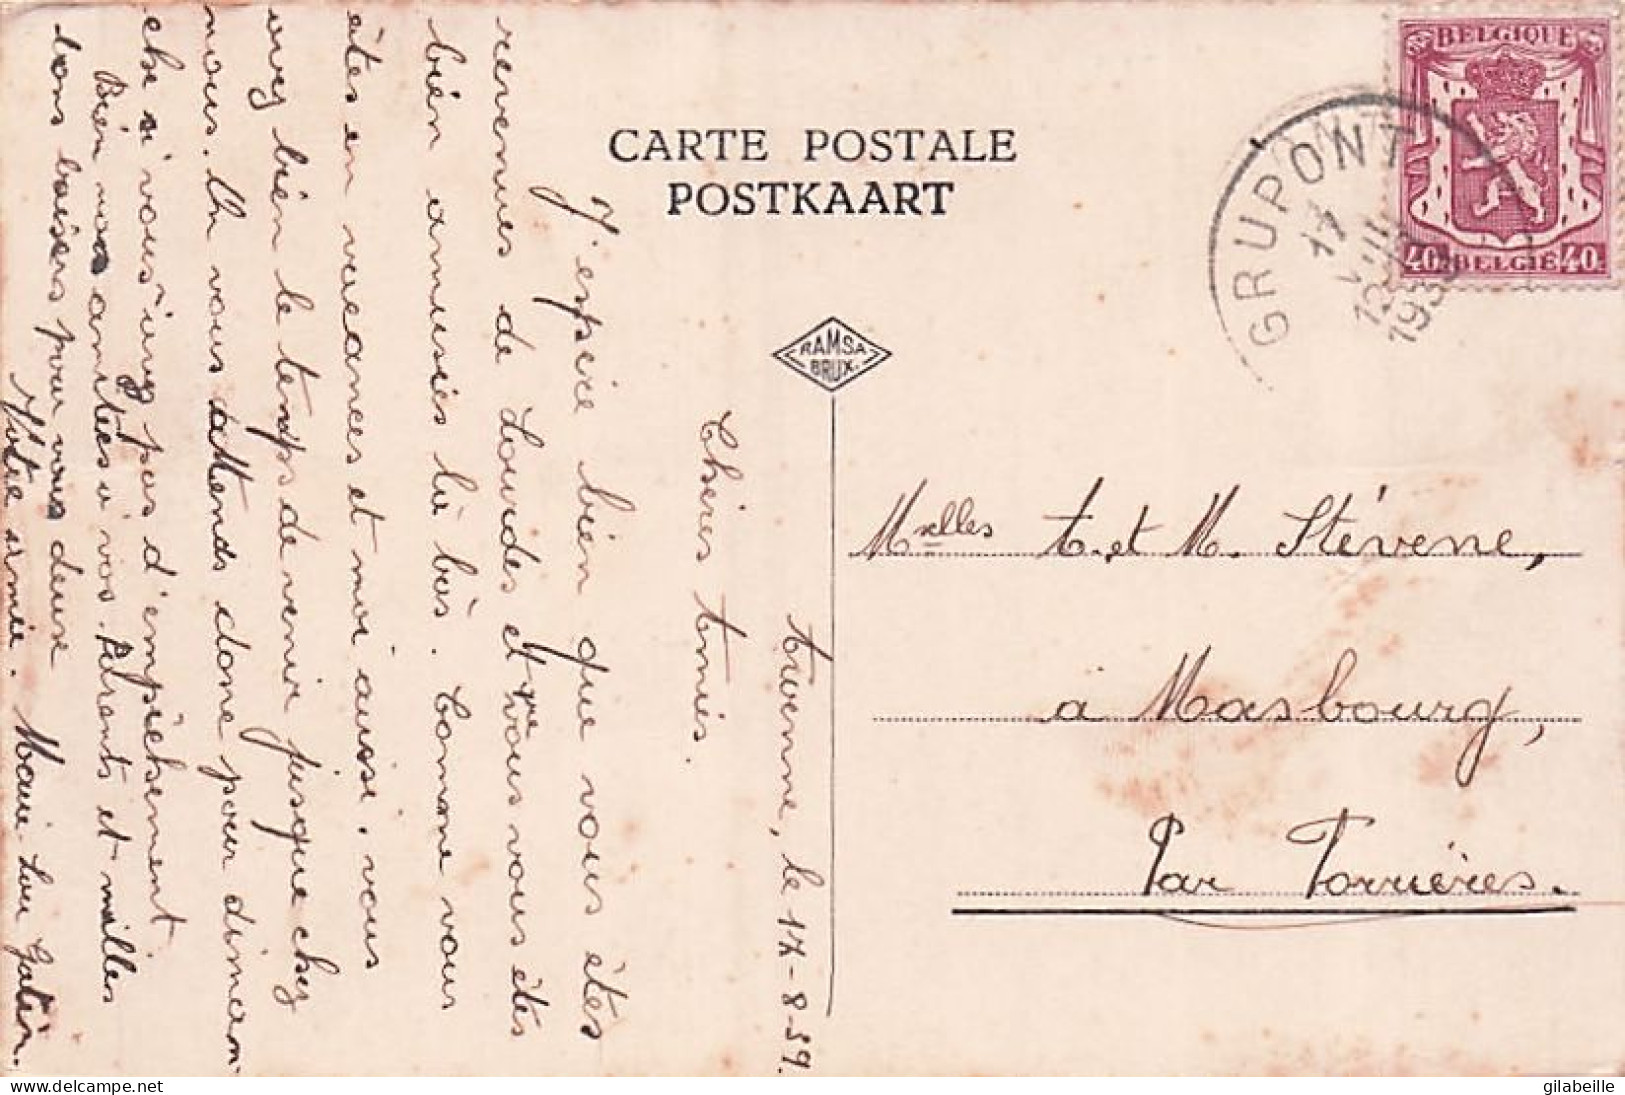 CARTE POSTALE
POSTKAART
RAMSA
BRUX.
BELGIQUE
40c BELGIË 40c
GRUPONT
17
VIII
12
193
Awenne, le 17-8-39.
Chères Amies.
J'espère bien que vous êtes
revenues de Lourdes et que vous vous êtes
bien amusées là bàs. Comme vous
êtes en vacances et moi aussi, vous
avez bien le temps de venir jusque chez
nous. On vous attends donc pour diman
che si vous n'avez pas d'empêchement
Bien nos amitiés à vos Parents et milles
bons baisers pour vous deux
Votre armée. Marie Lou Gatin.
Mselles A. et M. Stévene,
à Masbourg,
Par Forrières.
delcampe.net
gilabeille